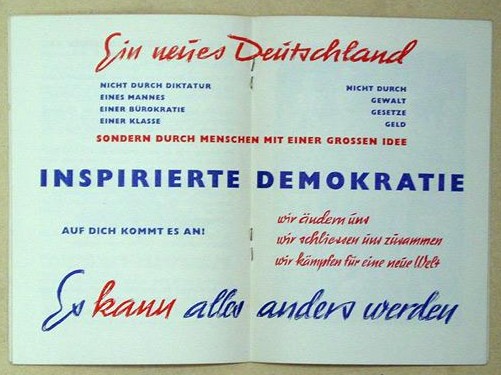 Ein neues Deutschland
NICHT DURCH DIKTATUR
EINES MANNES
EINER BÜROKRATIE
EINER KLASSE
NICHT DURCH
GEWALT
GESETZE
GELD
SONDERN DURCH MENSCHEN MIT EINER GROSSEN IDEE
INSPIRIERTE DEMOKRATIE
AUF DICH KOMMT ES AN!
wir ändern uns
wir schliessen uns zusammen
wir kämpfen für eine neue Welt
Es kann alles anders werden